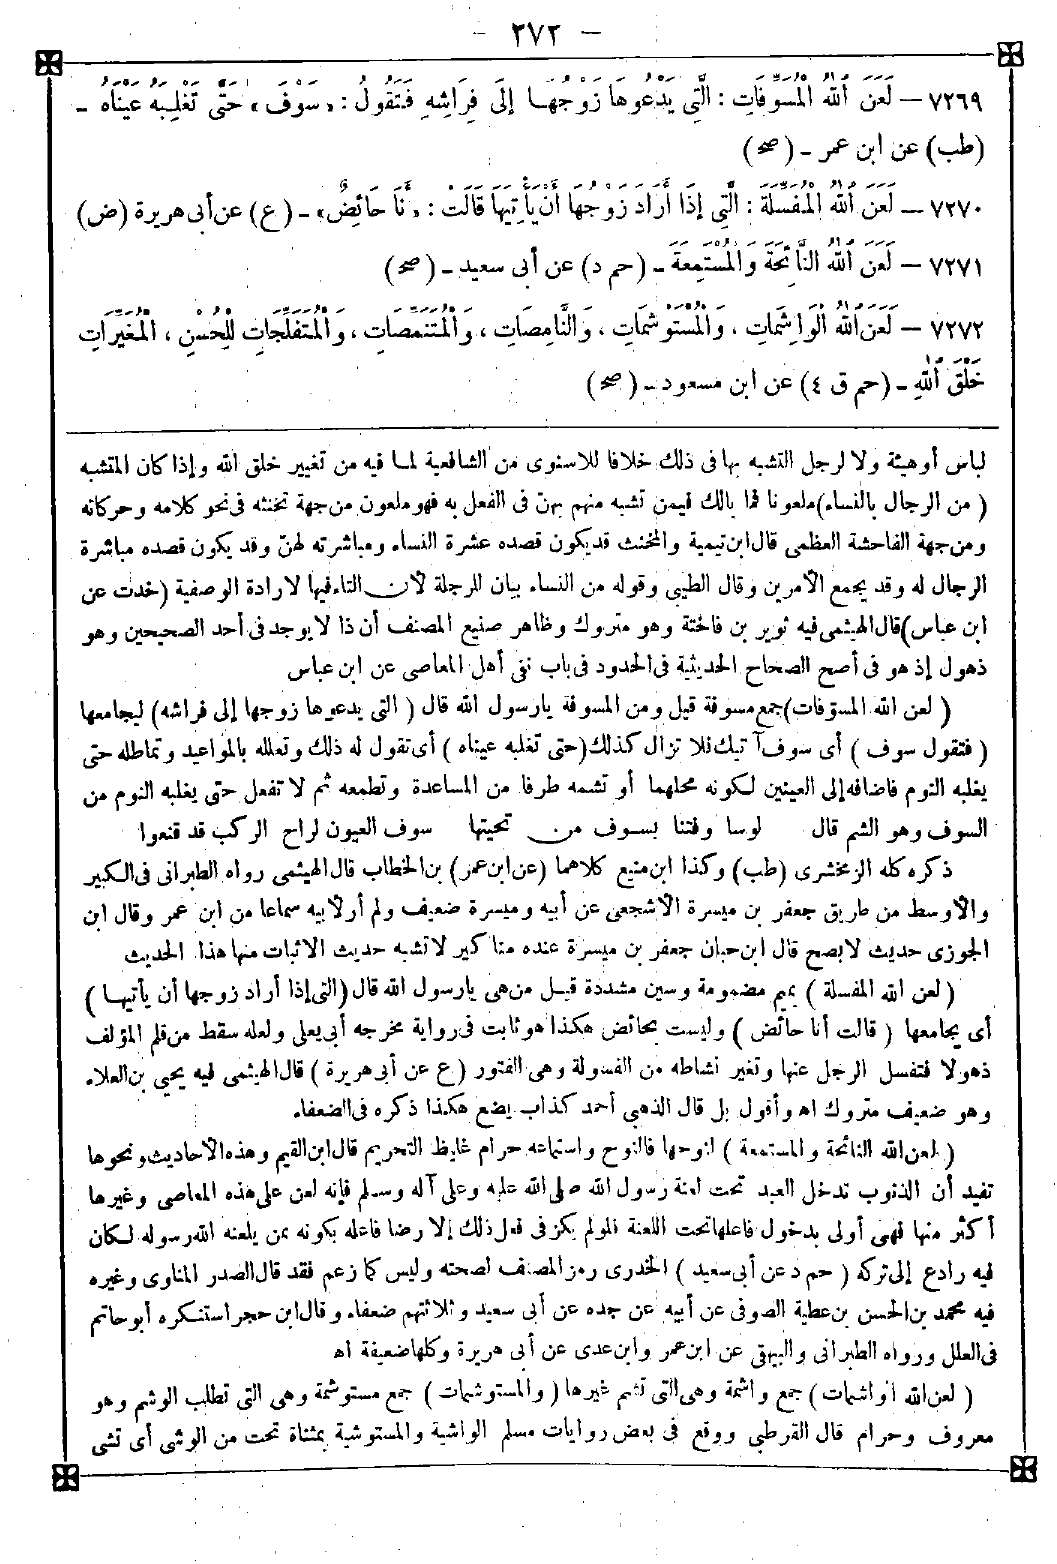 - ٢٧٢ -
٧٢٦٩ - لَعَنَ اللهُ الْمُسَوِّفَاتِ : الَّتِي يَدْعُوهَا زَوْجُهَا إِلَى فِرَاشِهِ فَتَقُولُ : «سَوْفَ» حَتَّى تَغْلِبَهُ عَيْنَاهُ -
(طب) عن ابن عمر - (صح)
٧٢٧٠ - لَعَنَ اللهُ الْمُفَسِّلَةَ : الَّتِي إِذَا أَرَادَ زَوْجُهَا أَنْ يَأْتِيَهَا قَالَتْ : «أَنَا حَائِضٌ» - (ع) عن أبى هريرة (ض)
٧٢٧١ - لَعَنَ اللهُ النَّائِحَةَ وَالْمُسْتَمِعَةَ - (حم د) عن أبى سعيد - (صح)
٧٢٧٢ - لَعَنَ اللهُ الْوَاشِمَاتِ ، وَالْمُسْتَوْشِمَاتِ ، وَالنَّامِصَاتِ ، وَالْمُتَنَمِّصَاتِ ، وَالْمُتَفَلِّجَاتِ لِلْحُسْنِ ، الْمُغَيِّرَاتِ
خَلْقَ اللهِ - (حم ق ٤) عن ابن مسعود - (صح)
لباس أوهيئة ولا لرجل التشبه بها فى ذلك خلافا للاسنوى من الشافعية لما فيه من تغيير خلق الله وإذا كان المتشبه
( من الرجال بالنساء) ملعونا فما بالك فيمن تشبه منهم بهنّ فى الفعل به فهو ملعون من جهة تخنثه فى نحو كلامه وحركاته
ومن جهة الفاحشة العظمى قال ابن تيمية والمخنث قد يكون قصده عشرة النساء ومباشرته لهنّ وقد يكون قصده مباشرة
الرجال له وقد يجمع الأمرين وقال الطيبى وقوله من النساء بيان للرجلة لأن التاء فيها لارادة الوصفية (خدت عن
ابن عباس) قال الهيثمى فيه ثوير بن فاختة وهو متروك وظاهر صنيع المصنف أن ذا لا يوجد فى أحد الصحيحين وهو
ذهول إذ هو فى أصح الصحاح الحديثية فى الحدود فى باب نفى أهل المعاصى عن ابن عباس
( لعن الله المسوّفات) جمع مسوفة قيل ومن المسوفة يارسول الله قال ( التى يدعوها زوجها إلى فراشه) ليجامعها
( فتقول سوف ) أى سوف آتيك فلا تزال كذلك (حتى تغلبه عيناه ) أى تقول له ذلك وتعلله بالمواعيد وتماطله حتى
يغلبه النوم فاضافه إلى العينين لكونه محلهما أو تشمه طرفا من المساعدة وتطمعه ثم لا تفعل حتى يغلبه النوم من
السوف وهو الشم قال لوسا وفتنا بسوف من تحيتها سوف العيون لراح الركب قد قنعوا
ذكره كله الزمخشرى (طب) وكذا ابن منيع كلاهما (عن ابن عمر) بن الخطاب قال الهيثمى رواه الطبرانى فى الكبير
والأوسط من طريق جعفر بن ميسرة الأشجعى عن أبيه وميسرة ضعيف ولم أر لأبيه سماعا من ابن عمر وقال ابن
الجوزى حديث لا يصح قال ابن حبان جعفر بن ميسرة عنده مناكير لا تشبه حديث الاثبات منها هذا الحديث
( لعن الله المفسلة ) بميم مضمومة وسين مشددة قيل من هى يارسول الله قال (التى إذا أراد زوجها أن يأتيها )
أى يجامعها ( قالت أنا حائض ) وليست بحائض هكذا هو ثابت فى رواية مخرجه أبى يعلى ولعله سقط من قلم المؤلف
ذهولا فتفسل الرجل عنها وتغير نشاطه من الفسولة وهى الفتور (ع عن أبى هريرة ) قال الهيثمى فيه يحيى بن العلاء
وهو ضعيف متروك اه وأقول بل قال الذهبى أحمد كذاب يضع هكذا ذكره فى الضعفاء
( لعن الله النائحة والمستمعة ) لنوحها فالنوح واستماعه حرام غليظ التحريم قال ابن القيم وهذه الأحاديث ونحوها
تفيد أن الذنوب تدخل العبد تحت لعنة رسول الله صلى الله عليه وعلى آله وسلم فإنه لعن على هذه المعاصى وغيرها
أكثر منها فهى أولى بدخول فاعلها تحت اللعنة فلولم يكن فى فعل ذلك إلا رضا فاعله بكونه ممن يلعنه الله رسوله لكان
فيه رادع إلى تركه ( حم د عن أبى سعيد ) الخدرى رمز المصنف لصحته وليس كما زعم فقد قال الصدر المناوى وغيره
فيه محمد بن الحسن بن عطية الصوفى عن أبيه عن جده عن أبى سعيد وثلاثتهم ضعفاء وقال ابن حجر استنكره أبو حاتم
فى العلل ورواه الطبرانى والبيهقى عن ابن عمر وابن عدى عن أبى هريرة وكلها ضعيفة اه
( لعن الله الواشمات ) جمع واشمة وهى التى تشم غيرها ( والمستوشمات ) جمع مستوشمة وهى التى تطلب الوشم وهو
معروف وحرام قال القرطبى ووقع فى بعض روايات مسلم الواشية والمستوشية بمثناة تحت من الوشى أى تشى